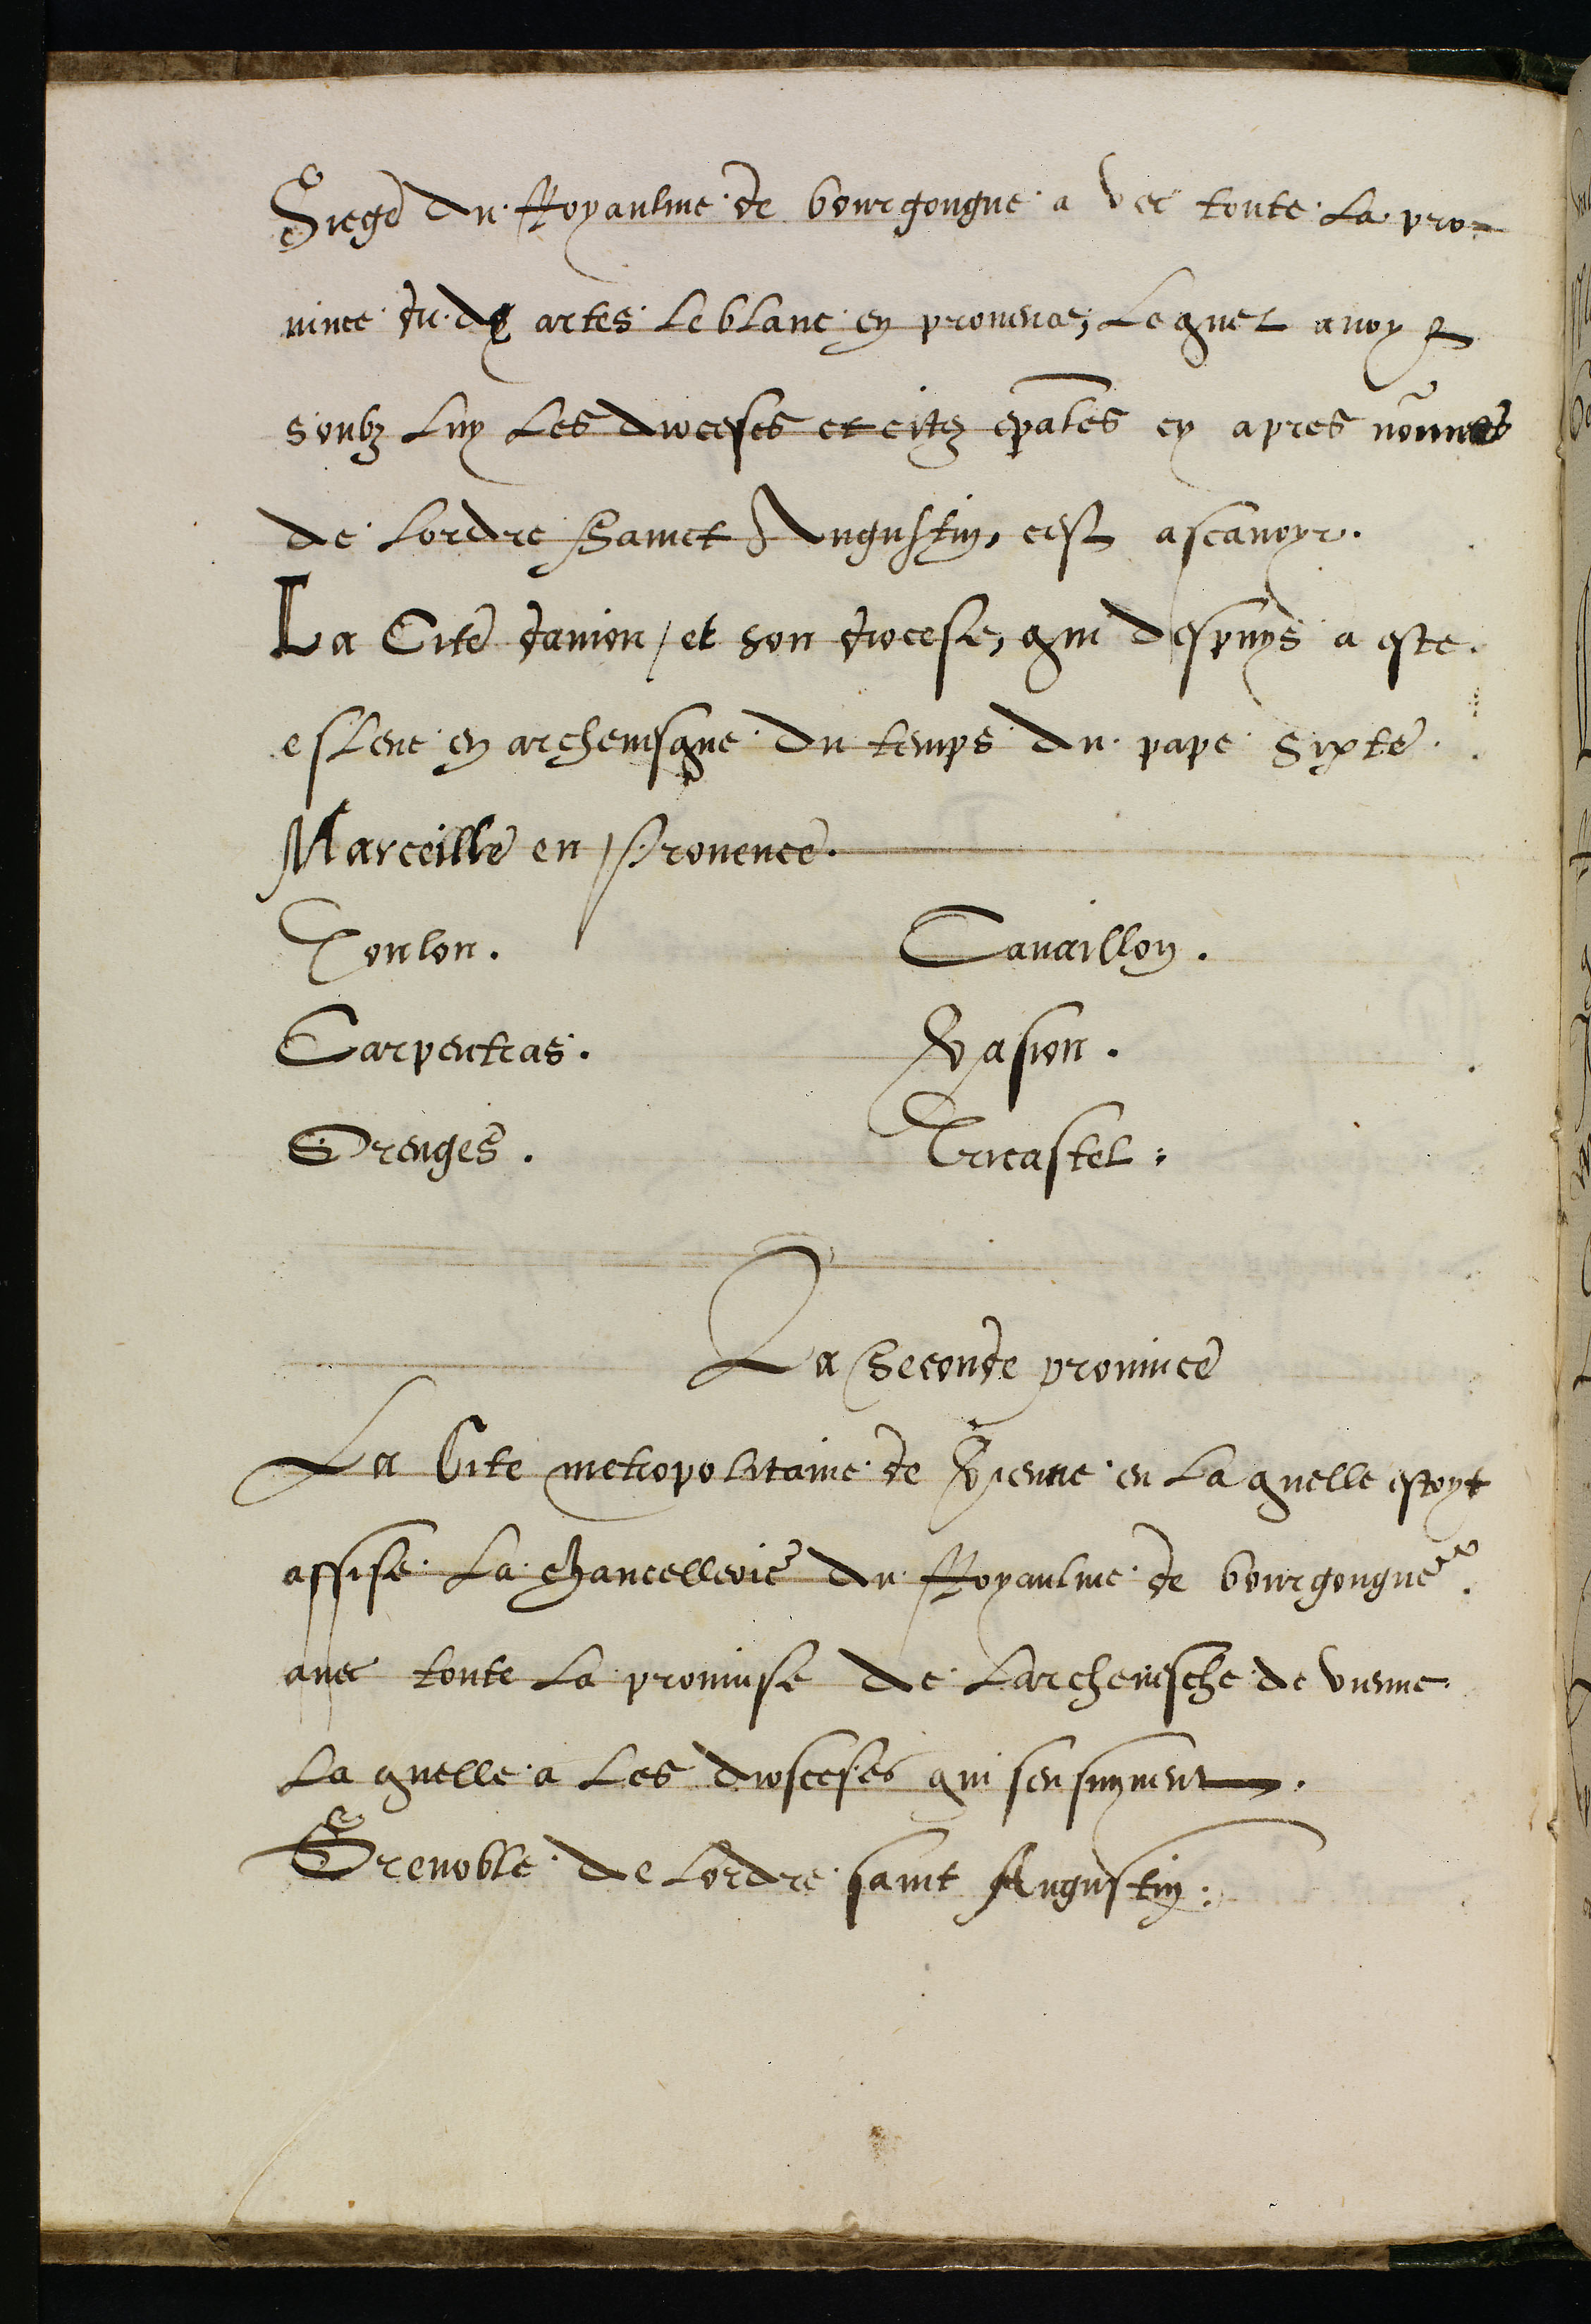 Siege du Royaulme de bourgongne a vec toute La pro-
uince du dƺ artes Leblanc en prouence, Lequel auoyt
soubz Luy Les dioceses et citez epãles cy apres nõmees
de Lordre Sainct Augustin, cest ascauoyr.
La Cite dauion / et son diocese, qui despuys a este
esleue en archeuesque du temps du pape Sixte.
Marceille en Prouence.
Toulon. Cauaillon.
Carpentras. Vasion.
Orenges. Tricastel.
La Seconde prouince
La Cite metropolitaine de Vienne en Laquelle estoyt
assise La chancellerie du Royaulme de bourgongne
auec toute La prouinse de Larcheuesche de vienne
La quelle a Les diosceses qui sensuyuent.
Grenoble de Lordre saint Augustin.